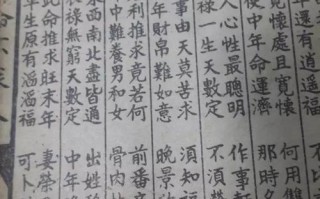 還有逍遙福
寬懷處且寬懷 何用雙
使中年命運濟 那時名
人心性最聰明 作事軒
祿一生天數定 不須
事由天莫苦求 須知福
年財帛難如意 晚景
利推求竟若何 前番
中難養男和女 骨肉
東西南北盡皆通 出姓
祿無窮天數定 中年
此命推求旺末年 妻榮
生原有滔滔福 可卜